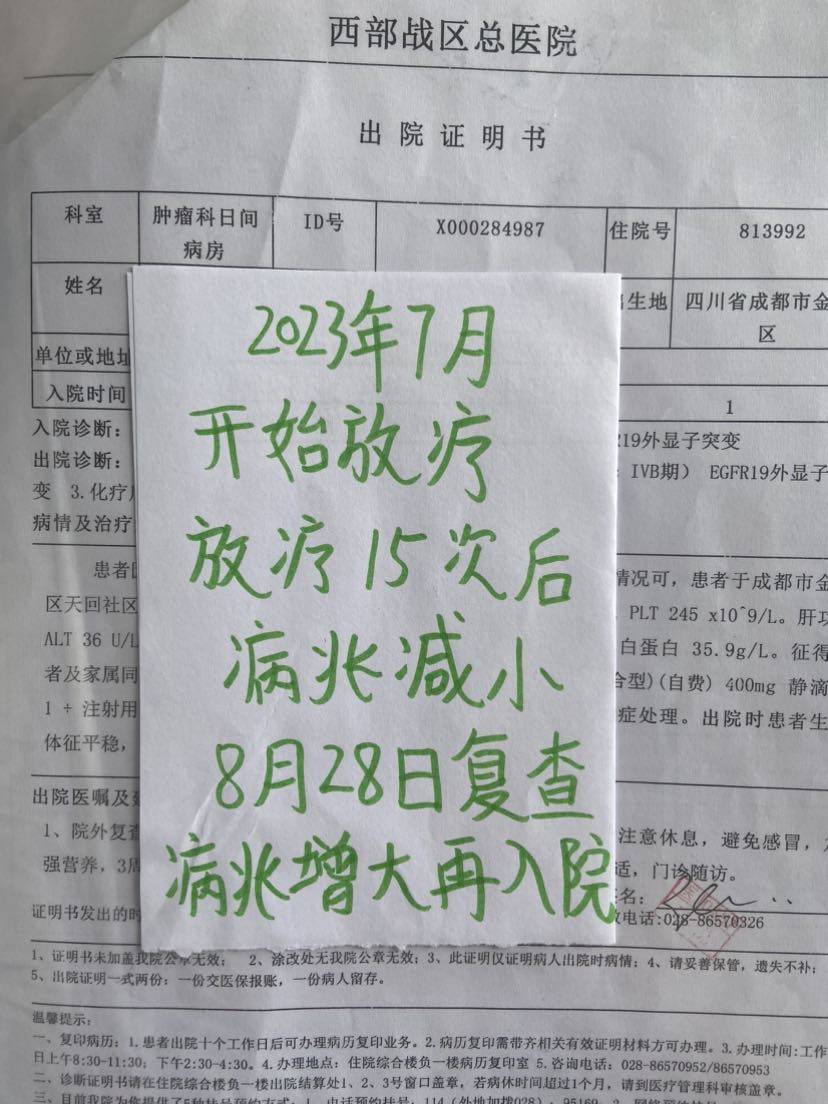 西部战区总医院
出院证明书
科室 肿瘤科日间病房 ID号 X000284987 住院号 813992
姓名 出生地 四川省成都市金
区
单位或地址
入院时间 1
入院诊断： 19外显子突变
出院诊断： IVB期） EGFR19外显子
变 3.化疗
病情及治疗
患者 情况可，患者于成都市金
区天回社区 PLT 245 x10^9/L。肝功
ALT 36 U/L 白蛋白 35.9g/L。征得
者及家属同 合型)(自费) 400mg 静滴
1 + 注射用 症处理。出院时患者生
体征平稳，
2023年7月
开始放疗
放疗15次后
病兆减小
8月28日复查
病兆增大再入院
出院医嘱及
1、院外复查 注意休息，避免感冒，
强营养，3周 适，门诊随访。
名：
证明书发出的时 电话:028-86570326
1、证明书未加盖我院公章无效； 2、涂改处无我院公章无效；3、此证明仅证明病人出院时病情；4、请妥善保管，遗失不补；
5、出院证明一式两份：一份交医保报账，一份病人留存。
温馨提示：
一、复印病历：1.患者出院十个工作日后可办理病历复印业务。2.病历复印需带齐相关有效证明材料方可办理。3.办理时间:工作
日上午8:30-11:30；下午2:30-4:30。4.办理地点：住院综合楼负一楼病历复印室 5.咨询电话：028-86570952/86570953
二、诊断证明书请在住院综合楼负一楼出院结算处1、2、3号窗口盖章，若病休时间超过1个月，请到医疗管理科审核盖章。
三、目前我院为您提供了5种挂号预约方式： 1、电话预约挂号：114（外地加拨028）；95169